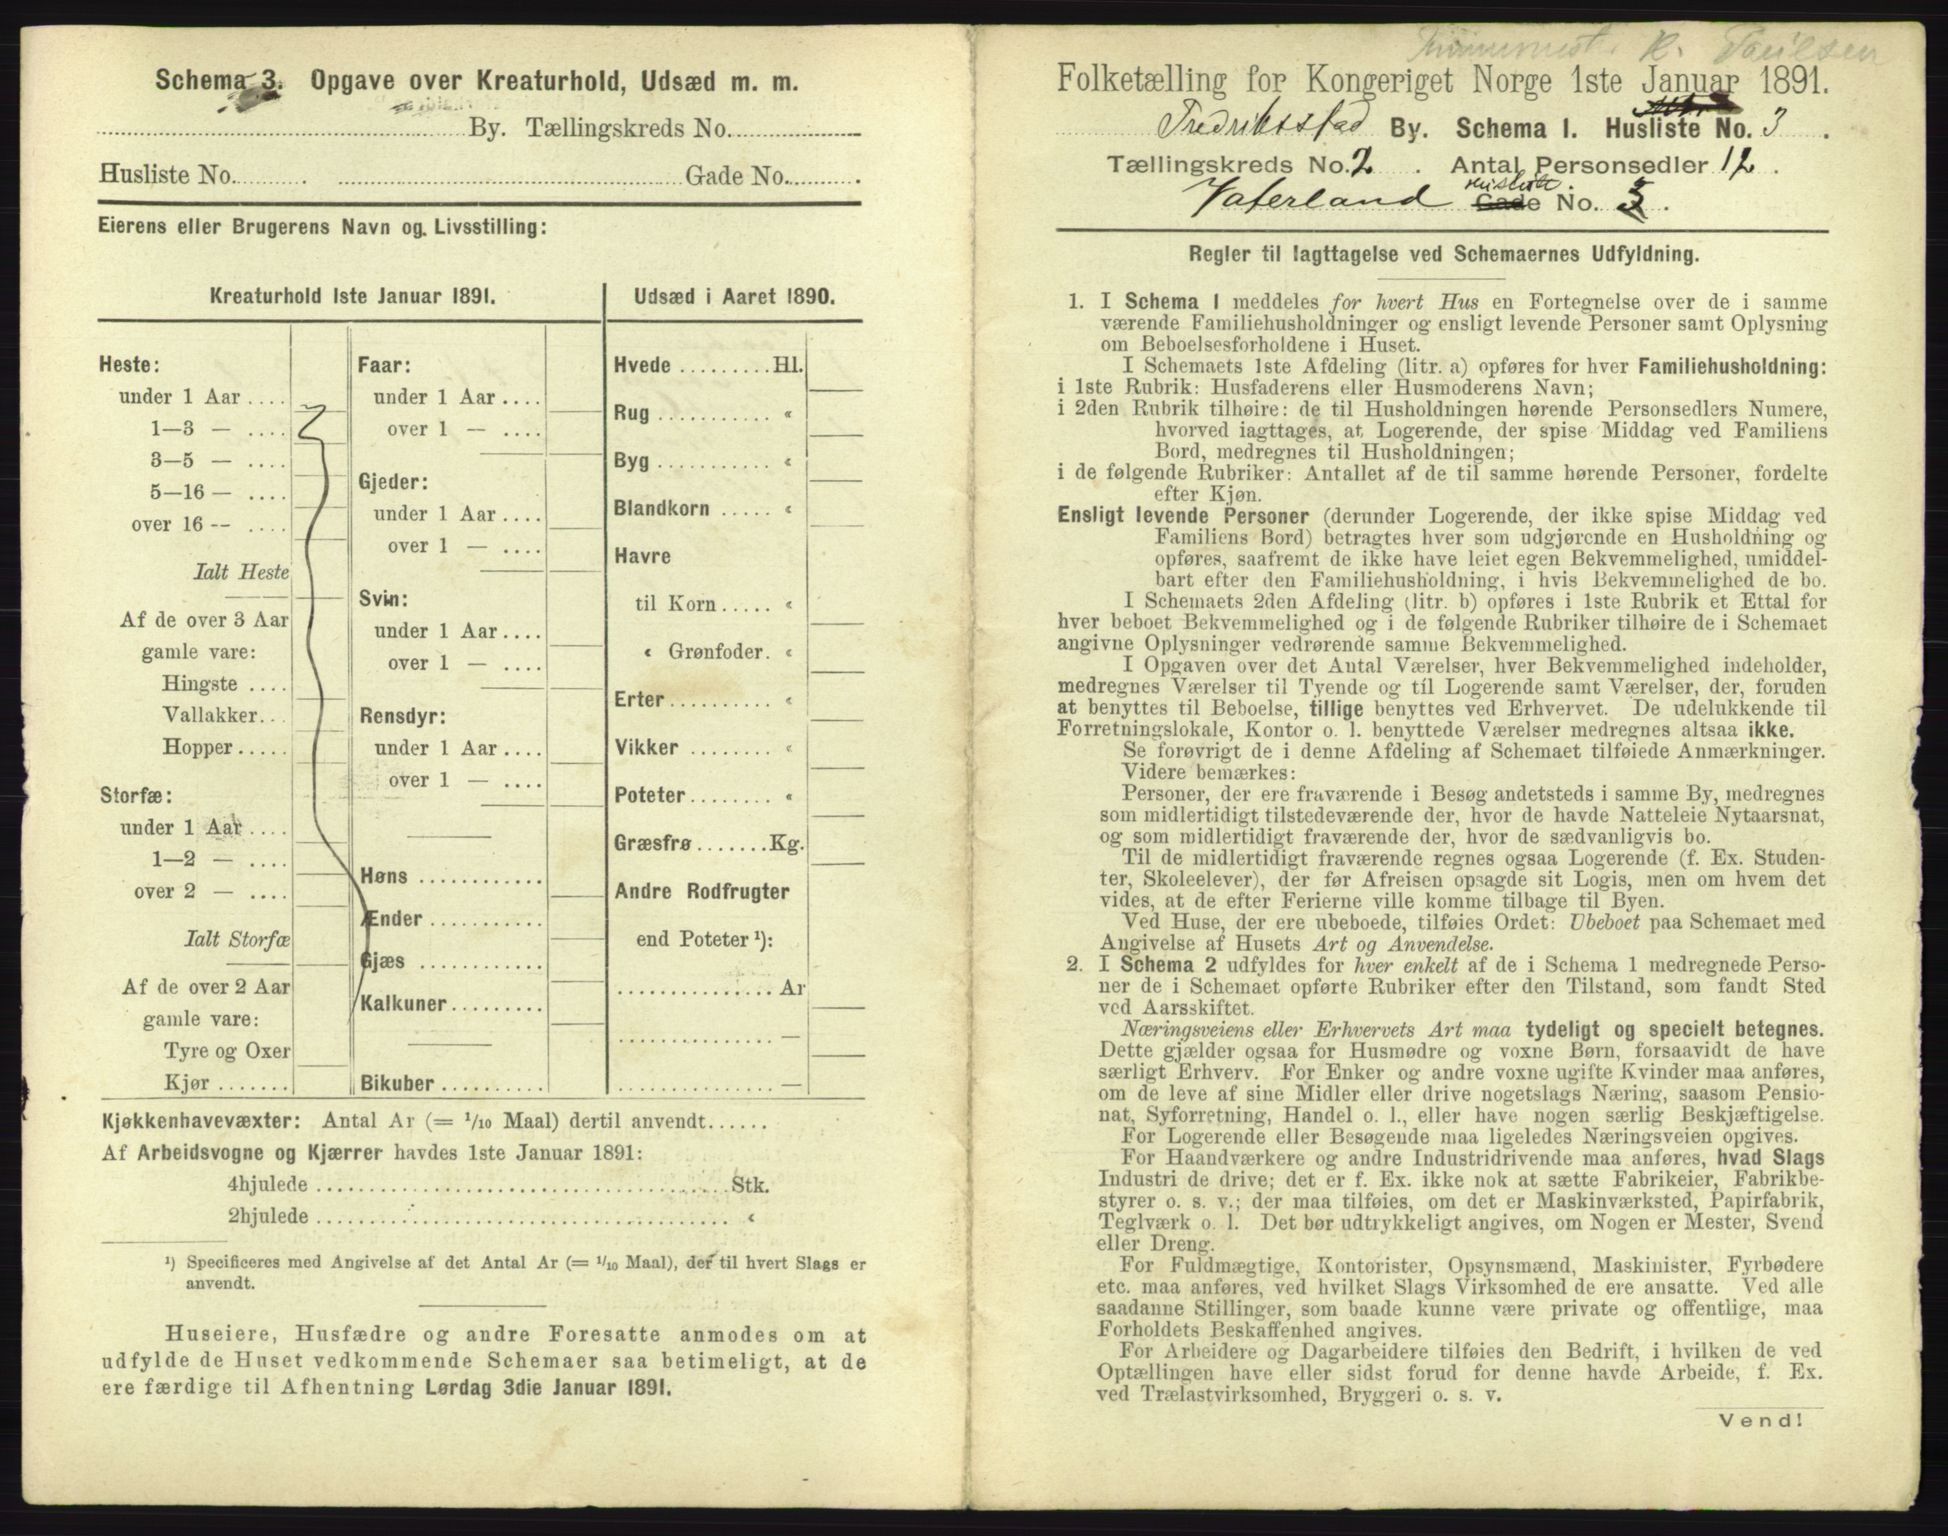 Schema 3. Opgave over Kreaturhold, Udsæd m. m.
By. Tællingskreds No.
Husliste No. Gade No.
Eierens eller Brugerens Navn og Livsstilling:
Kreaturhold 1ste Januar 1891.
Heste:
under 1 Aar ....
1—3 — ....
3—5 — ....
5—16 — ....
over 16 -- ....
Ialt Heste
Af de over 3 Aar
gamle vare:
Hingste ....
Vallakker...
Hopper.....
Storfæ:
under 1 Aar ....
1—2 — ....
over 2 — ....
Ialt Storfæ
Af de over 2 Aar
gamle vare:
Tyre og Oxer
Kjør .......
Faar:
under 1 Aar ....
over 1 — ....
Gjeder:
under 1 Aar ....
over 1 — ....
Svin:
under 1 Aar ....
over 1 — ....
Rensdyr:
under 1 Aar ....
over 1 — ....
Høns ............
Ænder ...........
Gjæs ............
Kalkuner.........
Bikuber ..........
Udsæd i Aaret 1890.
Hvede .........Hl.
Rug ........... «
Byg ........... «
Blandkorn ..... «
Havre
til Korn ..... «
« Grønfoder. «
Erter.......... «
Vikker ........ «
Poteter ........ «
Græsfrø .......Kg.
Andre Rodfrugter
end Poteter ¹):
............... Ar
............... —
............... —
Kjøkkenhavevæxter: Antal Ar (= 1/10 Maal) dertil anvendt......
Af Arbeidsvogne og Kjærrer havdes 1ste Januar 1891:
4hjulede ........ Stk.
2hjulede ........ «
¹) Specificeres med Angivelse af det Antal Ar (= 1/10 Maal), der til hvert Slags er
anvendt.
Huseiere, Husfædre og andre Foresatte anmodes om at
udfylde de Huset vedkommende Schemaer saa betimeligt, at de
ere færdige til Afhentning Lørdag 3die Januar 1891.
R. Paulsen
Folketælling for Kongeriget Norge 1ste Januar 1891.
Fredriksstad By. Schema 1. Husliste No. 3.
Tællingskreds No. 2. Antal Personsedler 12.
Vaterland Gade No. 3.
Regler til Iagttagelse ved Schemaernes Udfyldning.
1. I Schema 1 meddeles for hvert Hus en Fortegnelse over de i samme
værende Familiehusholdninger og ensligt levende Personer samt Oplysning
om Beboelsesforholdene i Huset.
I Schemaets 1ste Afdeling (litr. a) opføres for hver Familiehusholdning:
i 1ste Rubrik: Husfaderens eller Husmoderens Navn;
i 2den Rubrik tilhøire: de til Husholdningen hørende Personsedlers Numere,
hvorved iagttages, at Logerende, der spise Middag ved Familiens
Bord, medregnes til Husholdningen;
i de følgende Rubriker: Antallet af de til samme hørende Personer, fordelte
efter Kjøn.
Ensligt levende Personer (derunder Logerende, der ikke spise Middag ved
Familiens Bord) betragtes hver som udgjørende en Husholdning og
opføres, saafremt de ikke have leiet egen Bekvemmelighed, umiddel-
bart efter den Familiehusholdning, i hvis Bekvemmelighed de bo.
I Schemaets 2den Afdeling (litr. b) opføres i 1ste Rubrik et Ettal for
hver beboet Bekvemmelighed og i de følgende Rubriker tilhøire de i Schemaet
angivne Oplysninger vedrørende samme Bekvemmelighed.
I Opgaven over det Antal Værelser, hver Bekvemmelighed indeholder,
medregnes Værelser til Tyende og til Logerende samt Værelser, der, foruden
at benyttes til Beboelse, tillige benyttes ved Erhvervet. De udelukkende til
Forretningslokale, Kontor o. l. benyttede Værelser medregnes altsaa ikke.
Se forøvrigt de i denne Afdeling af Schemaet tilføiede Anmærkninger.
Videre bemærkes:
Personer, der ere fraværende i Besøg andetsteds i samme By, medregnes
som midlertidigt tilstedeværende der, hvor de havde Natteleie Nytaarsnat,
og som midlertidigt fraværende der, hvor de sædvanligvis bo.
Til de midlertidigt fraværende regnes ogsaa Logerende (f. Ex. Studen-
ter, Skoleelever), der før Afreisen opsagde sit Logis, men om hvem det
vides, at de efter Ferierne ville komme tilbage til Byen.
Ved Huse, der ere ubeboede, tilføies Ordet: Ubeboet paa Schemaet med
Angivelse af Husets Art og Anvendelse.
2. I Schema 2 udfyldes for hver enkelt af de i Schema 1 medregnede Perso-
ner de i Schemaet opførte Rubriker efter den Tilstand, som fandt Sted
ved Aarsskiftet.
Næringsveiens eller Erhvervets Art maa tydeligt og specielt betegnes.
Dette gjælder ogsaa for Husmødre og voxne Børn, forsaavidt de have
særligt Erhverv. For Enker og andre voxne ugifte Kvinder maa anføres,
om de leve af sine Midler eller drive nogetslags Næring, saasom Pensio-
nat, Syforretning, Handel o. l., eller have nogen særlig Beskjæftigelse.
For Logerende eller Besøgende maa ligeledes Næringsveien opgives.
For Haandværkere og andre Industridrivende maa anføres, hvad Slags
Industri de drive; det er f. Ex. ikke nok at sætte Fabrikeier, Fabrikbe-
styrer o. s. v.; der maa tilføies, om det er Maskinværksted, Papirfabrik,
Teglværk o. l. Det bør udtrykkeligt angives, om Nogen er Mester, Svend
eller Dreng.
For Fuldmægtige, Kontorister, Opsynsmænd, Maskinister, Fyrbødere
etc. maa anføres, ved hvilket Slags Virksomhed de ere ansatte. Ved alle
saadanne Stillinger, som baade kunne være private og offentlige, maa
Forholdets Beskaffenhed angives.
For Arbeidere og Dagarbeidere tilføies den Bedrift, i hvilken de ved
Optællingen have eller sidst forud for denne havde Arbeide, f. Ex.
ved Trælastvirksomhed, Bryggeri o. s. v.
Vend!